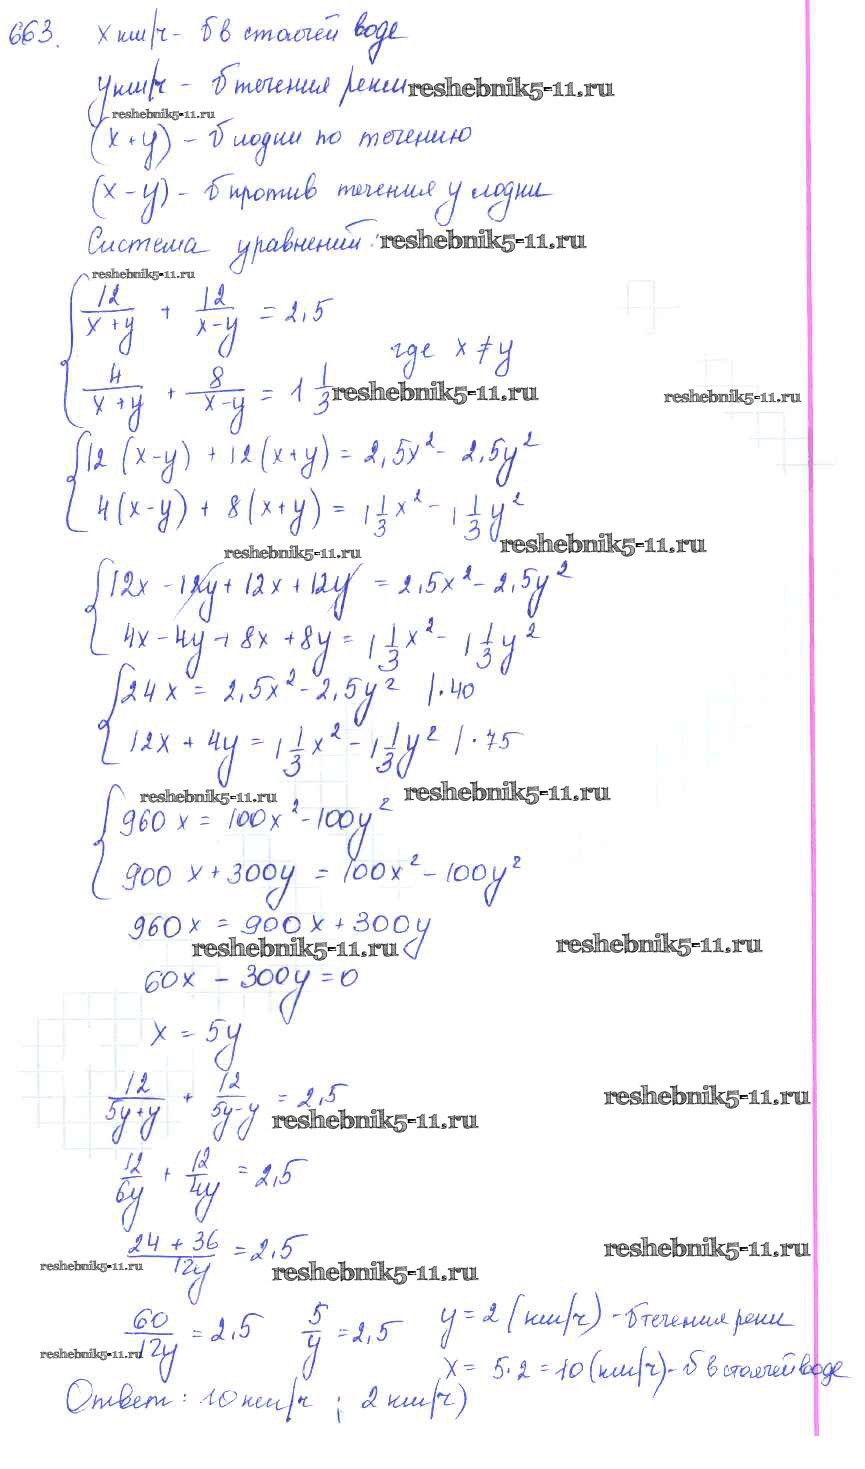 663. х км/ч - б в стоячей воде
у км/ч - б течения реки reshebnik5-11.ru
reshebnik5-11.ru
(х+у) - б лодки по течению
(х-у) - б против течения у лодки
Система уравнений: reshebnik5-11.ru
reshebnik5-11.ru
12/(х+у) + 12/(х-у) = 2,5
где х ≠ у
4/(х+у) + 8/(х-у) = 1 1/3 reshebnik5-11.ru reshebnik5-11.ru
12(х-у) + 12(х+у) = 2,5х² - 2,5у²
4(х-у) + 8(х+у) = 1 1/3 х² - 1 1/3 у²
reshebnik5-11.ru reshebnik5-11.ru
12х - 12у + 12х + 12у = 2,5х² - 2,5у²
4х - 4у + 8х + 8у = 1 1/3 х² - 1 1/3 у²
24х = 2,5х² - 2,5у² |·40
12х + 4у = 1 1/3 х² - 1 1/3 у² |·75
reshebnik5-11.ru reshebnik5-11.ru
960х = 100х² - 100у²
900х + 300у = 100х² - 100у²
960х = 900х + 300у
reshebnik5-11.ru reshebnik5-11.ru
60х - 300у = 0
х = 5у
12/(5у+у) + 12/(5у-у) = 2,5 reshebnik5-11.ru
reshebnik5-11.ru
12/6у + 12/4у = 2,5
(24 + 36)/12у = 2,5 reshebnik5-11.ru
reshebnik5-11.ru reshebnik5-11.ru
60/12у = 2,5 5/у = 2,5 у = 2 (км/ч) - б течения реки
reshebnik5-11.ru х = 5·2 = 10 (км/ч) - б в стоячей воде
Ответ: 10 км/ч ; 2 км/ч)